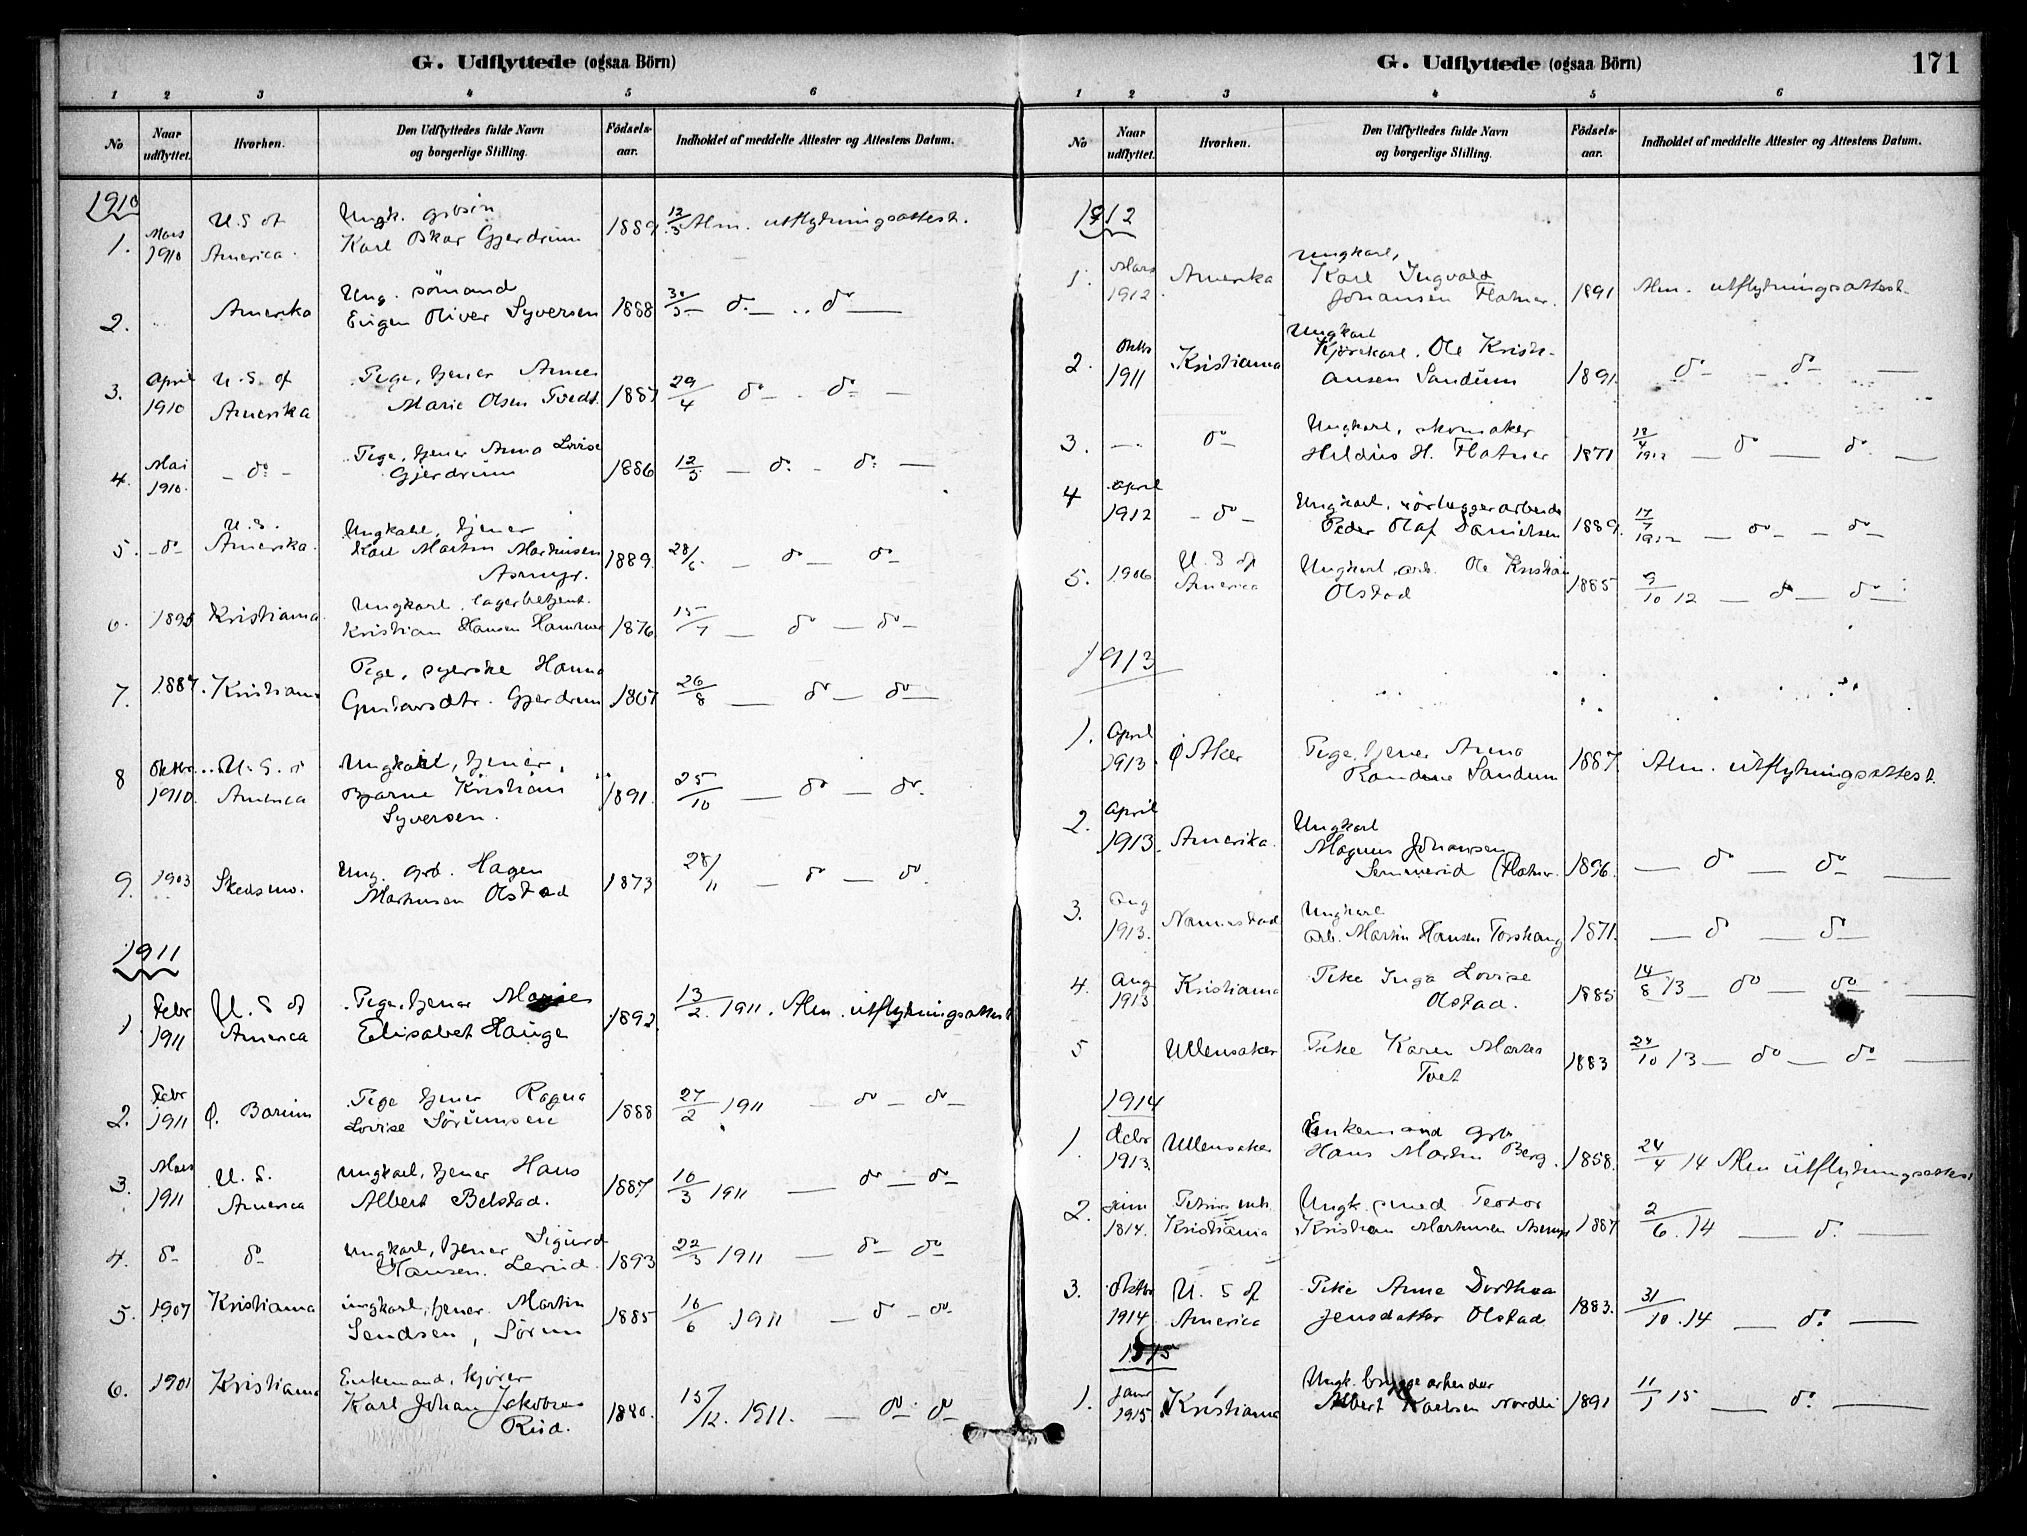 G. Udflyttede (ogsaa Börn)
1 2 3 4 5 6
No
Naar udflyttet.
Hvorhen.
Den Udflyttedes fulde Navn og borgerlige Stilling.
Födsels-aar.
Indholdet af meddelte Attester og Attestens Datum.
1910
1. Mars 1910 U.S of America. Ungk. Karl Oskar Gjerdrum 1889. 12/3 Alm. utflytningsattest.
2. Amerika Ung. sømand Eugen Oliver Syversen 1888 30/3 do do
3. April 1910 U.S. of Amerika Pige, tjener Anne Marie Olsen Tvedt. 1887 29/4 do do
4. Mai 1910. do Pige, tjener Anna Lovise Gjerdrum 1886 12/5 do do
5. do U.S. Amerika. Ungkarl, tjener Karl Martin Martinsen Asmyr. 1889. 28/6 do do
6. 1895 Kristiania Ungkarl. lagerbetjent. Kristian Hansen Hammer 1876 15/7 do do
7. 1887. Kristiania Pige, syerske Hanna Gustavsdtr. Gjerdrum 1867 26/8 do do
8 Oktbr 1910. U.S. America Ungkarl, tjener, Bjarne Kristian Syversen. 1891. 25/10 do do.
9. 1903 Skedsmo. Ung. Hagen Martinsen Olstad 1873 28/11 do do.
1911
1. Febr 1911 U.S of America Pige, tjener Marie Elisabet Hauge 1892. 13/2. 1911. Alm. utflytningsattest
2. Febr 1911 Ø. Bærum Pige tjener Ragna Lovise Sørumsen 1888 27/2 1911 do do
3. Mars 1911 U.S. America Ungkarl, tjener Hans Albert Belstad. 1887 10/3 1911 do do
4. do do Ungkarl, tjener Sigurd Hansen. 1893 22/3 1911 do do
5. 1907 Kristiania ungkarl, tjener. Martin Sørum 1885 16/6 1911 do do
6. 1901 Kristiania Enkemand, kjører Karl Johan Jakobsen Rud. 1880. 15/12. 1911. do do
G. Udflyttede (ogsaa Börn)
171
1 2 3 4 5 6
No
Naar udflyttet.
Hvorhen.
Den Udflyttedes fulde Navn og borgerlige Stilling.
Födsels-aar.
Indholdet af meddelte Attester og Attestens Datum.
1912
1. Mars 1912. Amerika Ungkarl, Karl Ingvald Johansen Flatner. 1891 Alm. utflytningsattest.
2. Oktbr 1911 Kristiania Ungkarl Kjørekarl. Ole Kristi-ansen Sandum 1891. do do
3. do Ungkarl, skomaker Hildus H. Flatner 1871 18/4 1912 do do
4 April 1912 do Ungkarl, rørlæggerarbeider Peder Olaf Danielsen 1889. 17/7 1912 do do
5. 1906 U.S of America Ungkarl, arb. Ole Kristian Olstad 1885 9/10 12 do do
1913
1. April 1913. Ø Aker Pige, tjener Anna Randine Sandum 1887. Alm. utflytningsattest.
2. April 1913. Amerika. Ungkarl Magnus Johansen (Flatner. 1896. do do
3. Aug 1913. Nannestad Ungkarl arb. Martin Hansen Torshaug 1871. do do
4. Aug 1913 Kristiania Pike Inga Lovise Olstad. 1885 14/8 13 do do
5 Ullensaker Pike Karen Marta Tvet 1883 24/10 13 do do
1914
1. Febr 1913. Ullensaker Enkemand Hans Martin Berg. 1858. 24/4 14 Alm utflytningsattest
2. juni 1814. Kristiania Ungk. smed Teodor Kristian Martinsen 1887 2/6. 14 do
3. Oktbr 1914 U.S of America Pike Anna Dorthea Jensdatter Olstad 1883. 31/10. 14 do
1915
1. Janr 1915 Kristiania Ungk. bryggearbeider Albert Nordli 1891 11/1 15 do